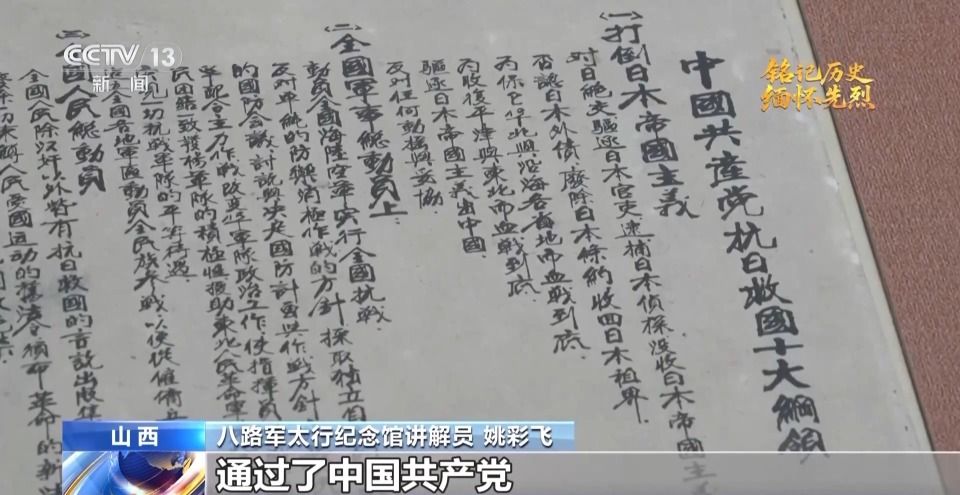 CCTV 13
新闻
铭记历史
缅怀先烈
中國共産党抗日救國十大綱領
㈠打倒日本帝國主義
對日絶交驅逐日本官吏逮捕日本侦探没收日本帝國主
否認日本外债廢除日本條約收回日本租界
為保卫华北與沿海各省地而血戰到底
為收復平津與東北而血戰到底
驅逐日本帝國主義出中國
反对任何動摇與妥协
㈡全國軍事總動員上
動員全國海陸空軍实行全國抗戰
反对单純的防禦消極作戰的方針採取独立自
的國防会議討説與决定國防計畫與作戰方針
軍配合主力作戰改革軍隊政治工作使指揮員
民团結一致發揚軍隊的積極性援助東北人民革命軍
一切抗戰軍隊的平等待遇
全國各地軍區動員全民族参戰以便從僱傭
㈢全國人民總動員
全國人民除汉奸外皆有抗日救國的言説出版集
山西
八路军太行纪念馆讲解员 姚彩飞
通过了中国共产党